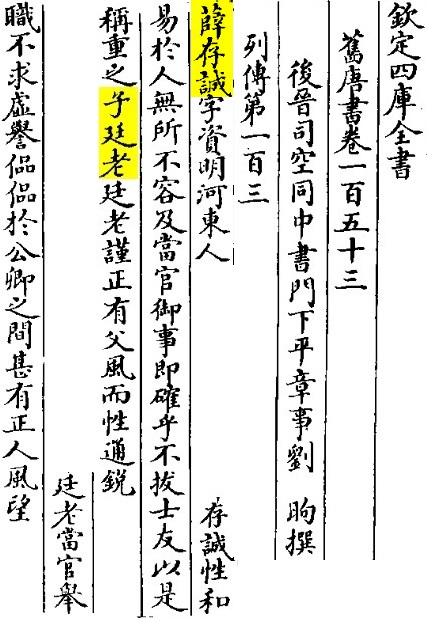 欽定四庫全書
舊唐書卷一百五十三
後晉司空同中書門下平章事劉 昫撰
列傳第一百三
薛存誠字資明河東人
存誠性和
易於人無所不容及當官御事即確乎不拔士友以是
稱重之子廷老廷老謹正有父風而性通銳
廷老當官舉
職不求虛譽侃侃於公卿之間甚有正人風望